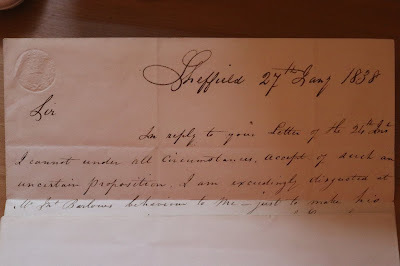 Sheffield 27th Jany 1838
Sir
In reply to your Letter of the 24th Inst
I cannot under all Circumstances, accept of such an
uncertain proposition, I am exceedingly disgusted at
Mr Jno Barlows behaviour to me – just to make his